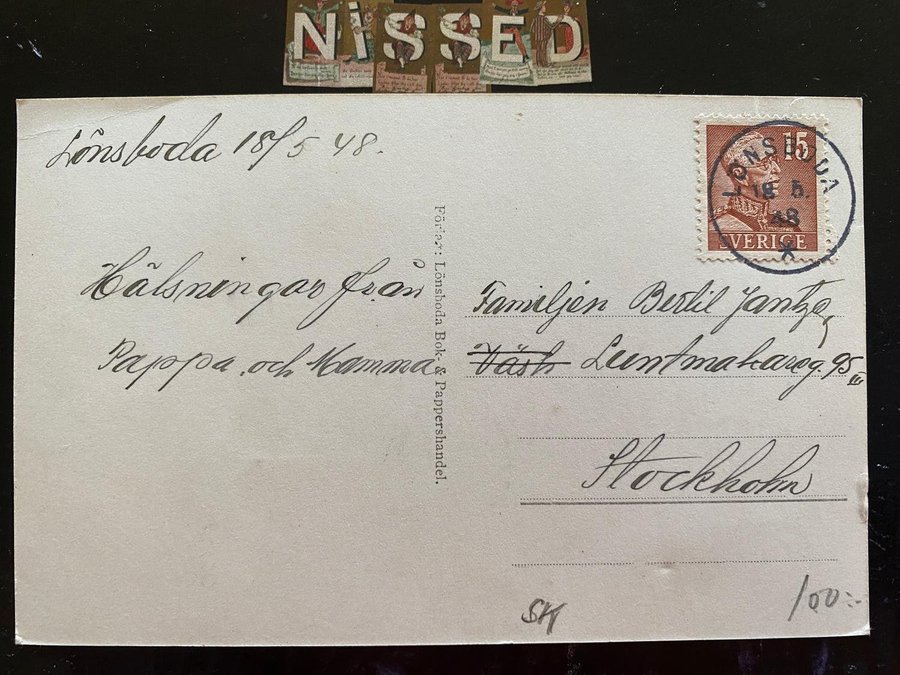 NISSED
Lönsboda 18/5 48.
Hälsningar från
Pappa och Mamma
Förlag: Lönsboda Bok- & Pappershandel.
15
SVERIGE
LÖNSBODA
18 5.
48
Familjen Bertil Jantze
Väsb Luntmakareg. 95 III
Stockholm
SK
100:-